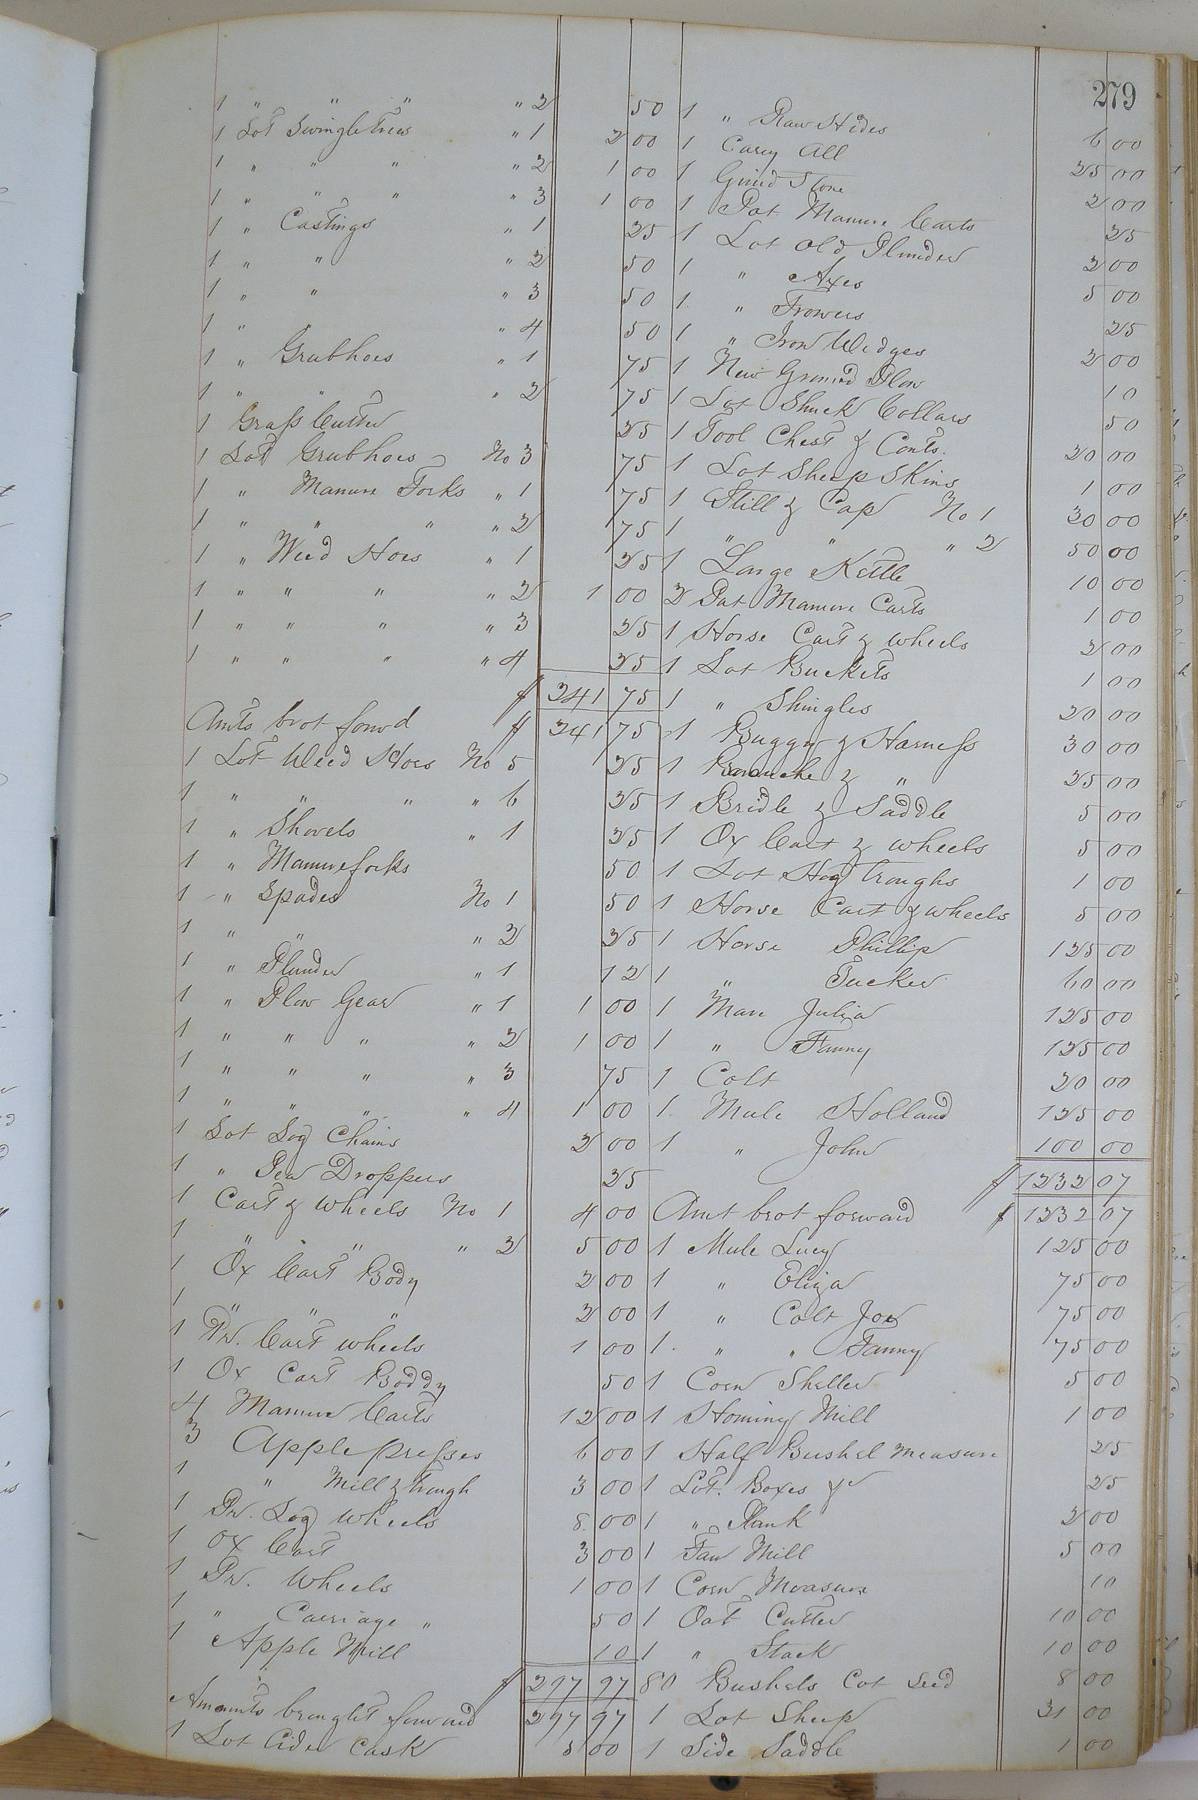 279
1 " " " " 2 50
1 Lot Swingletrees " 1 2 00
1 " " " " 2 1 00
1 " " " " 3 1 00
1 " Castings " 1 25
1 " " " 2 50
1 " " " 3 50
1 " " " 4 50
1 " Grubhoes " 1 75
1 " " " 2 75
1 Grass Cutter 25
1 Lot Grubhoes No 3 75
1 " Manure Forks " 1 75
1 " " " " 2 75
1 " Weed Hoes " 1 25
1 " " " " 2 1 00
1 " " " " 3 25
1 " " " " 4 25
$ 241 75
Amts brot forwd $ 241 75
1 Lot Weed Hoes No 5 25
1 " " " " 6 25
1 " Shovels " 1 25
1 " Manureforks 50
1 " Spades No 1 50
1 " " " 2 25
1 " Plunder " 1 12
1 " Plow Gear " 1 1 00
1 " " " " 2 1 00
1 " " " " 3 75
1 " " " " 4 1 00
1 Lot Log Chains 2 00
1 " Pea Droppers 25
1 Cart & Wheels No 1 4 00
1 " " " 2 5 00
1 Ox Cart Body 2 00
1 " " " 2 00
1 Pr. Cart wheels 1 00
1 Ox Cart Boddy 50
4 Manure Carts 12 00
3 Apple presses 6 00
1 " Mill & trough 3 00
1 Pr. Log Wheels 8 00
1 Ox Cart 3 00
1 Pr. Wheels 1 00
1 " Carriage " 50
1 Apple Mill 10
$ 297 97
Amounts brought forward 297 97
1 Lot Cider Cask 5 00
1 " Raw Hides 6 00
1 Cary All 25 00
1 Grind Stone 2 00
1 Pat Manure Carts 25
1 Lot old Plunder 2 00
1 " Axes 5 00
1 " Frowers 25
1 " Iron Wedges 2 00
1 New Ground Plow 10
1 Lot Shuck Collars 50
1 Tool Chest & Conts. 20 00
1 Lot Sheep Skins 1 00
1 Still & Cap No 1 30 00
1 " " " 2 50 00
1 Large Kettle 10 00
2 Pat Manure Carts 1 00
1 Horse Cart & wheels 2 00
1 Lot Buckets 1 00
1 " Shingles 20 00
1 Buggy & Harness 30 00
1 Barouche & " 25 00
1 Bridle & Saddle 5 00
1 Ox Cart & wheels 5 00
1 Lot Hog troughs 1 00
1 Horse Cart & wheels 5 00
1 Horse Phillip 125 00
1 " Tucker 60 00
1 Mare Julia 125 00
1 " Fanny 125 00
1 Colt 20 00
1 Mule Holland 125 00
1 " John 100 00
$ 1232 07
Amt brot forward $ 1232 07
1 Mule Lucy 125 00
1 " Eliza 75 00
1 " Colt Joe 75 00
1 " " Fanny 75 00
1 Corn Sheller 5 00
1 Hominy Mill 1 00
1 Half Bushel measure 25
1 Lot. Boxes &c 25
1 " Plank 2 00
1 Fan Mill 5 00
1 Corn Measure 10
1 Oat Cutter 10 00
1 " Stack 10 00
80 Bushels Cot Seed 8 00
1 Lot Sheep 31 00
1 Side Saddle 1 00